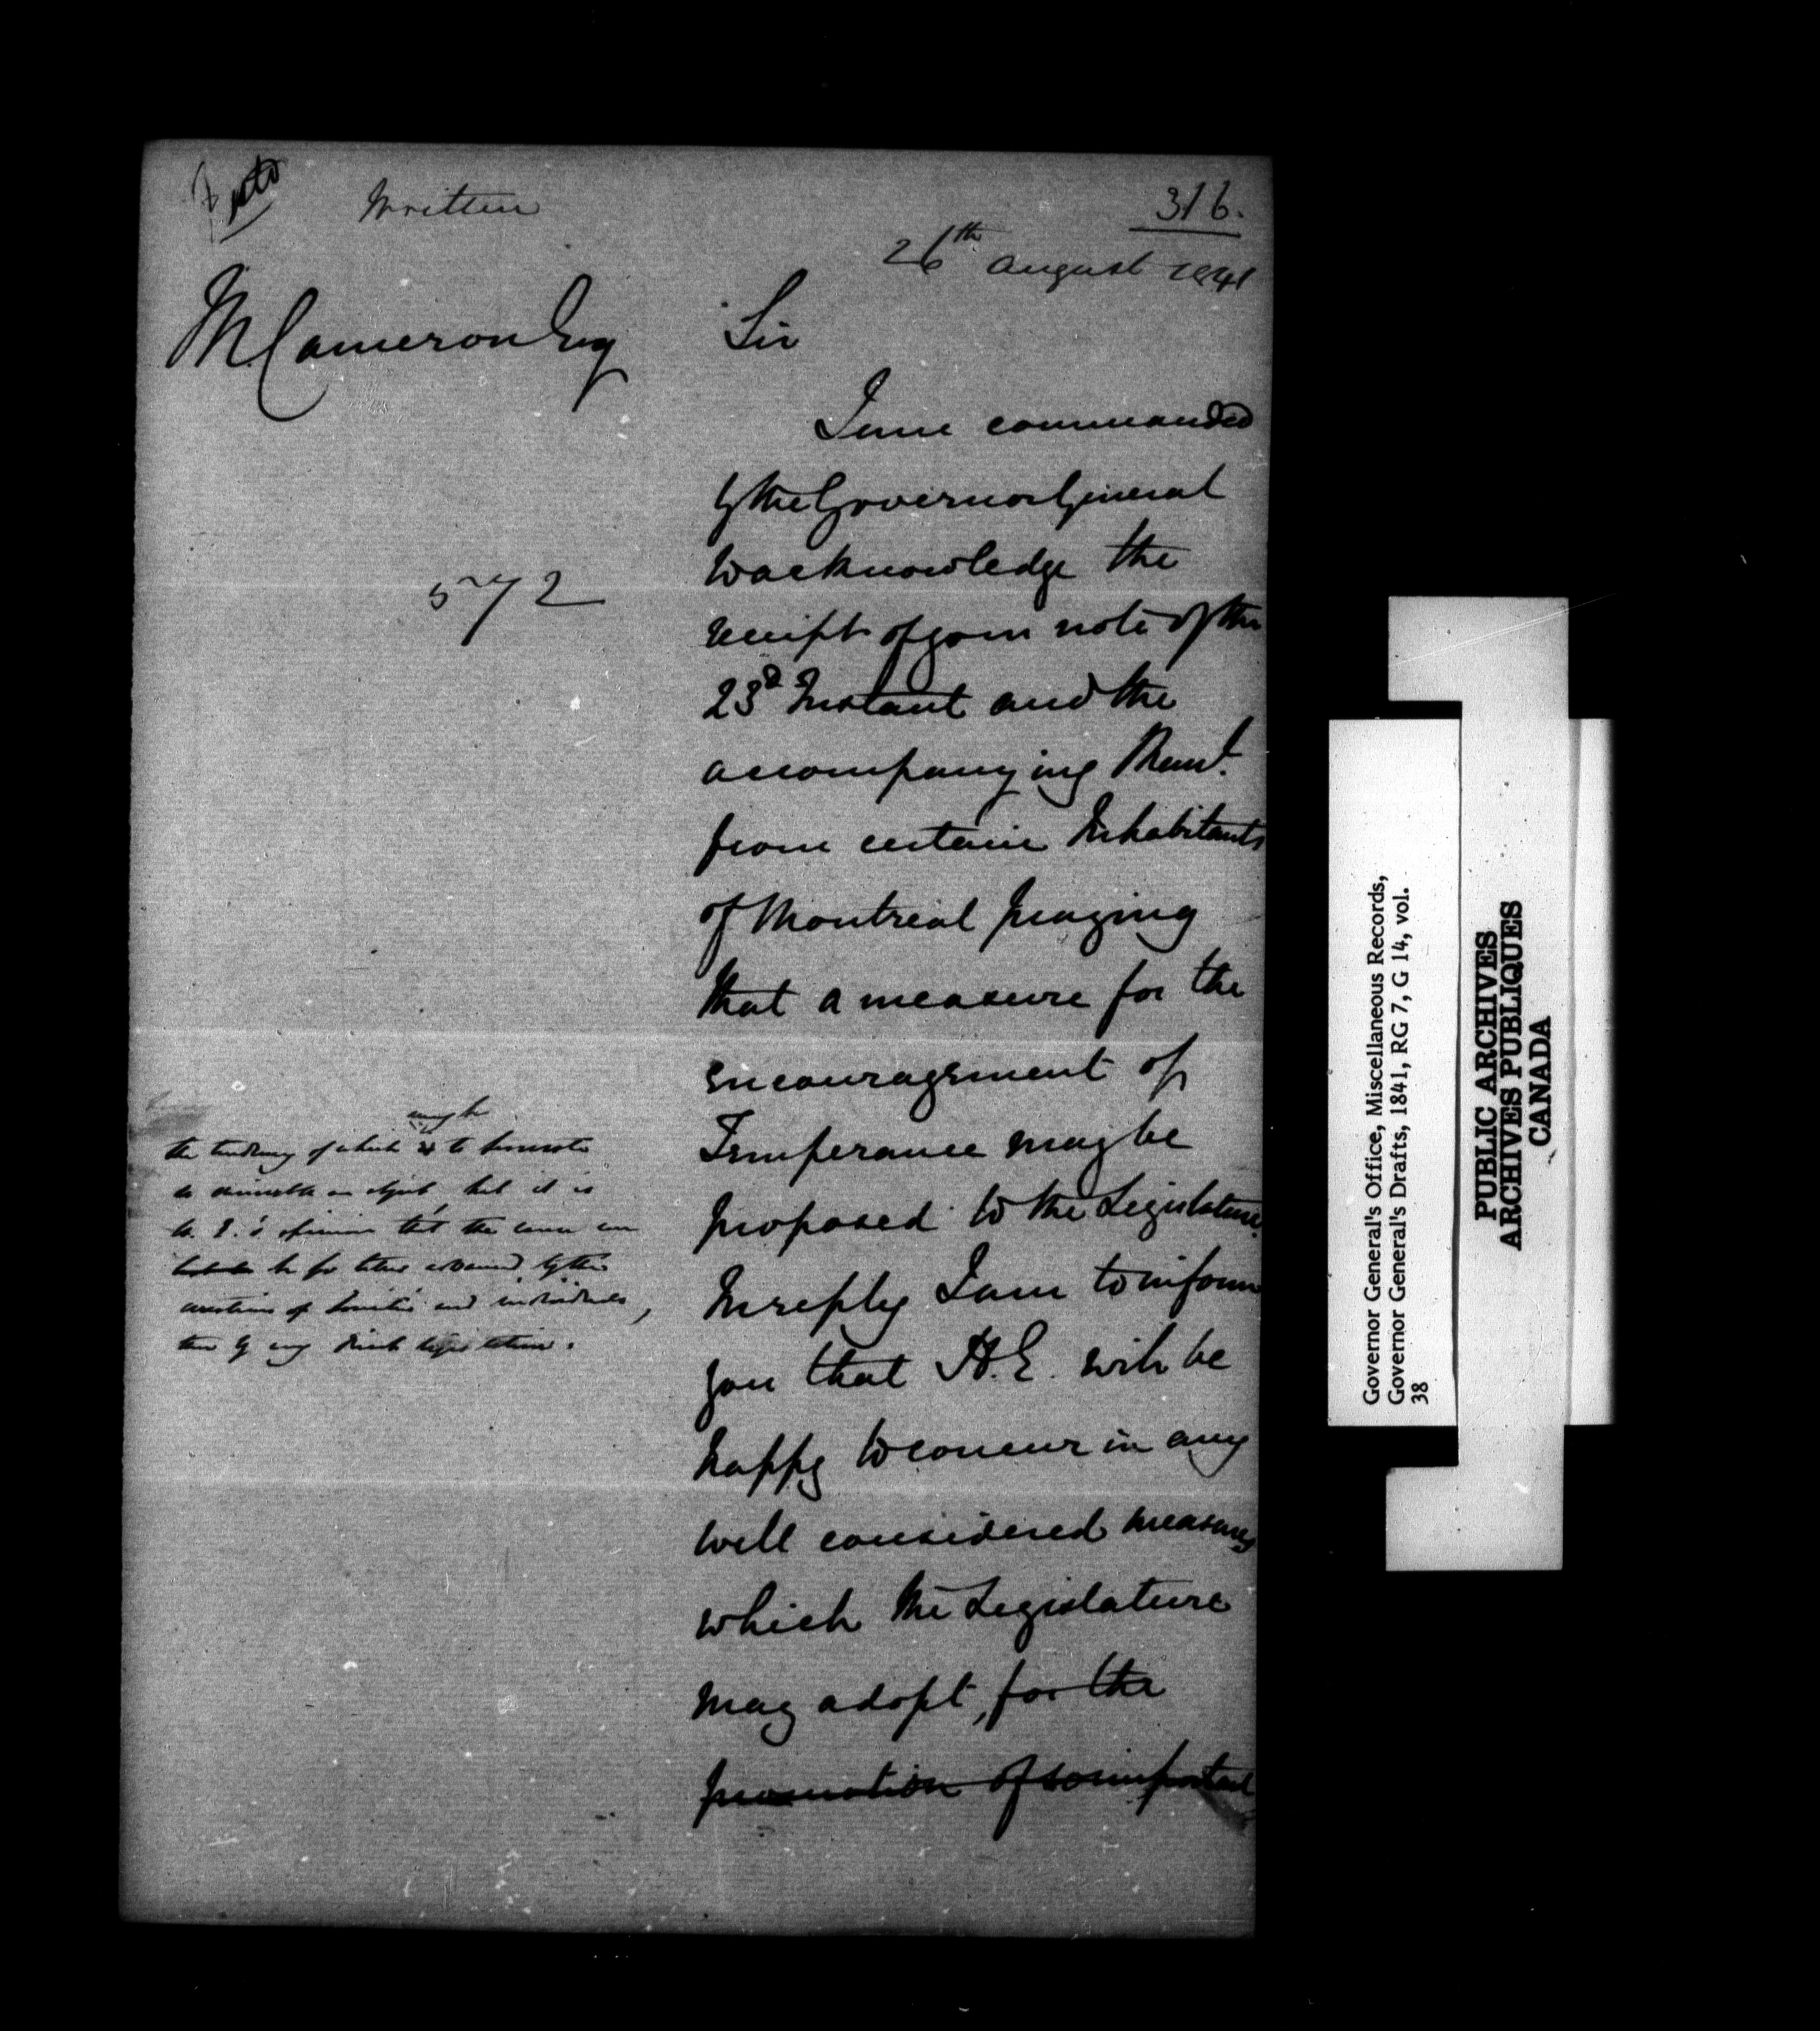 Written
316.
26th August 1841
M. Cameron Esq
Sir
I am commanded
by the Governor General
to acknowledge the
receipt of your note of the
23d Instant and the
accompanying Meml.
from certain Inhabitants
of Montreal praying
that a measure for the
encouragement of
Temperance may be
proposed to the Legislature.
In reply I am to inform
you that H.E. will be
happy to concur in any
well considered measures
which the Legislature
may adopt, for the
promotion of so important
572
may be
the tendency of which is to promote
so desirable an object, but it is
H. E.'s opinion that the cause can
be far better advanced by the
exertions of Societies and individuals,
than by any direct legislation.
Governor General's Office, Miscellaneous Records,
Governor General's Drafts, 1841, RG 7, G 14, vol.
38
PUBLIC ARCHIVES
ARCHIVES PUBLIQUES
CANADA